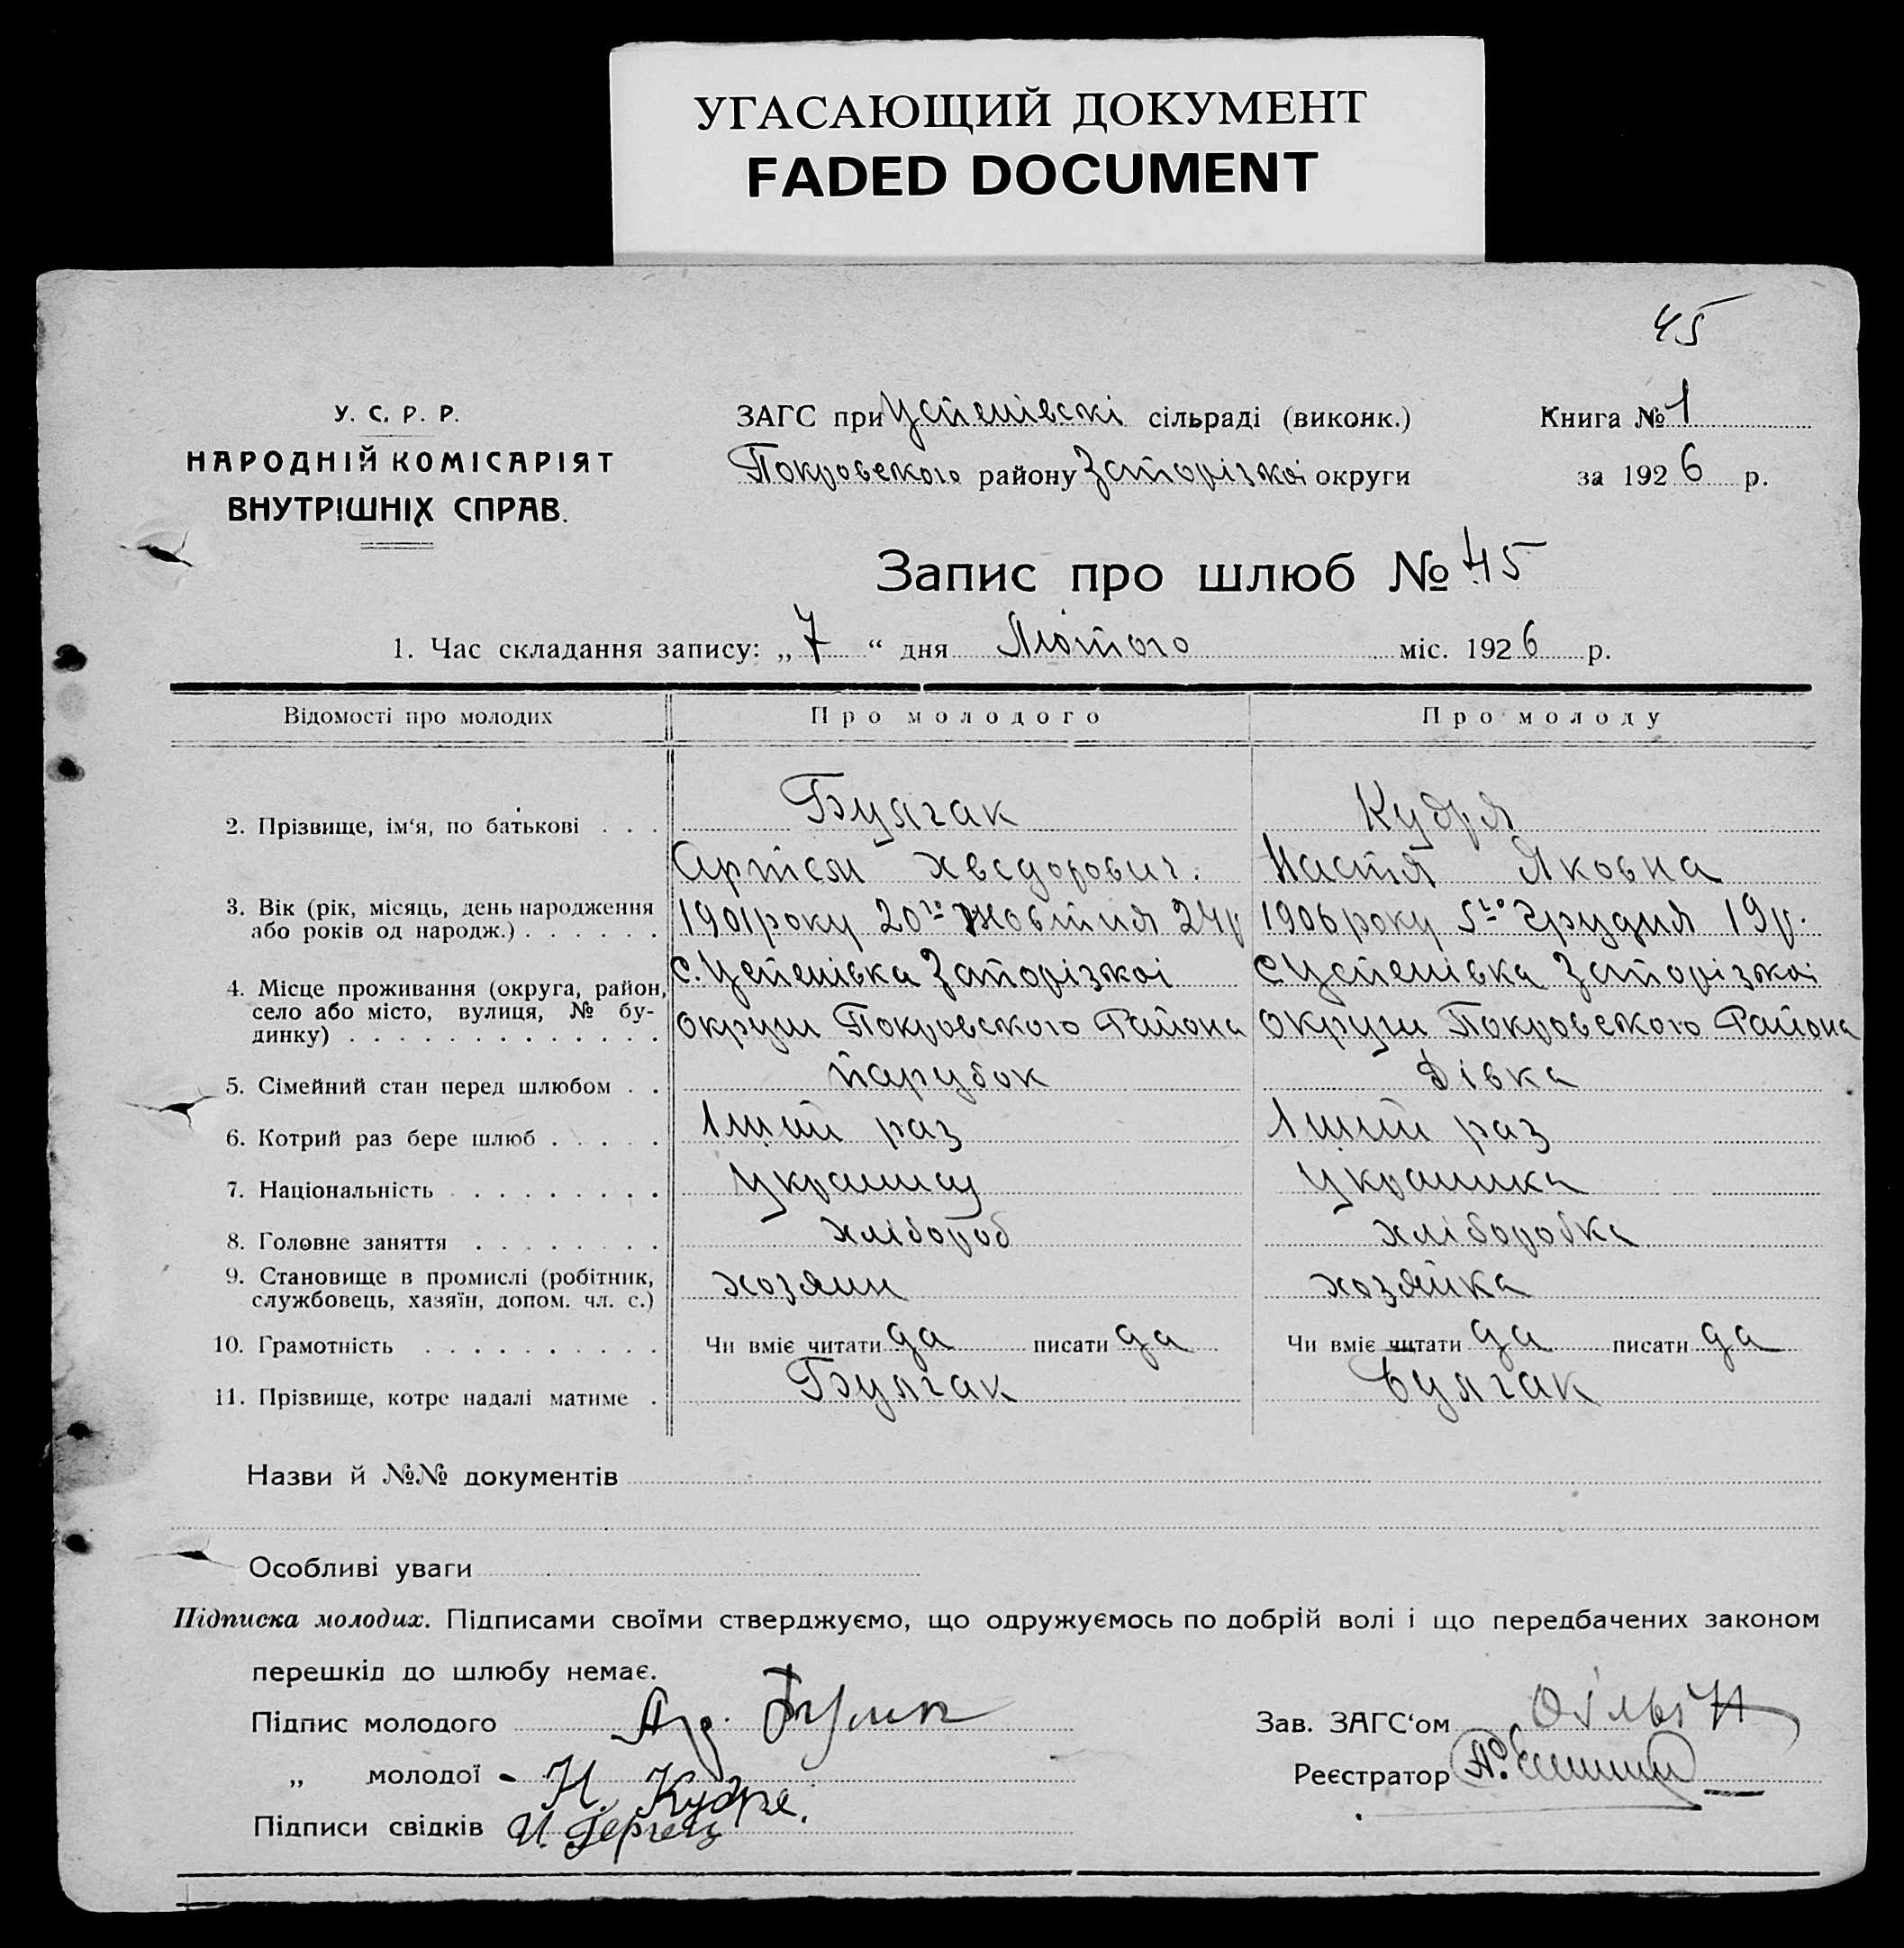 УГАСАЮЩИЙ ДОКУМЕНТ
FADED DOCUMENT
45
У. С. Р. Р.
НАРОДНІЙ КОМІСАРІЯТ
ВНУТРІШНІХ СПРАВ.
ЗАГС при Успенівскі сільраді (виконк.)
Покровского району Запорізкоі округи
Книга № 1
за 1926 р.
Запис про шлюб № 45
1. Час складання запису: „7“ дня Лютого міс. 1926 р.
Відомості про молодих Про молодого Про молоду
2. Прізвище, ім‘я, по батькові . . . Булгак Кудря
Артем Хведорович. Настя Яковна
3. Вік (рік, місяць, день народження 1901 року 20го Жовтня 24р 1906 року 5го Грудня 19р.
або років од народж.) . . . . . .
4. Місце проживання (округа, район, с. Успенівка Запорізкоі с. Успенівка Запорізкоі
село або місто, вулиця, № бу- округи Покровского Района округи Покровского Района
динку) . . . . . . . . . . . . .
5. Сімейний стан перед шлюбом . . парубок Дівка
6. Котрий раз бере шлюб . . . . . 1ший раз 1ший раз
7. Національність . . . . . . . . . Украинец Украинка
8. Головне заняття . . . . . . . . хлібороб хліборобка
9. Становище в промислі (робітник, хозяин хозяйка
службовець, хазяїн, допом. чл. с.)
10. Грамотність . . . . . . . . . . Чи вміє читати да писати да Чи вміє читати да писати да
11. Прізвище, котре надалі матиме . Булгак Булгак
Назви й №№ документів
Особливі уваги
Підписка молодих. Підписами своїми стверджуємо, що одружуємось по добрій волі і що передбачених законом
перешкід до шлюбу немає.
Підпис молодого Ар.
Зав. ЗАГС‘ом
„ молодої Н. Кудря.
Реєстратор
Підписи свідків И.